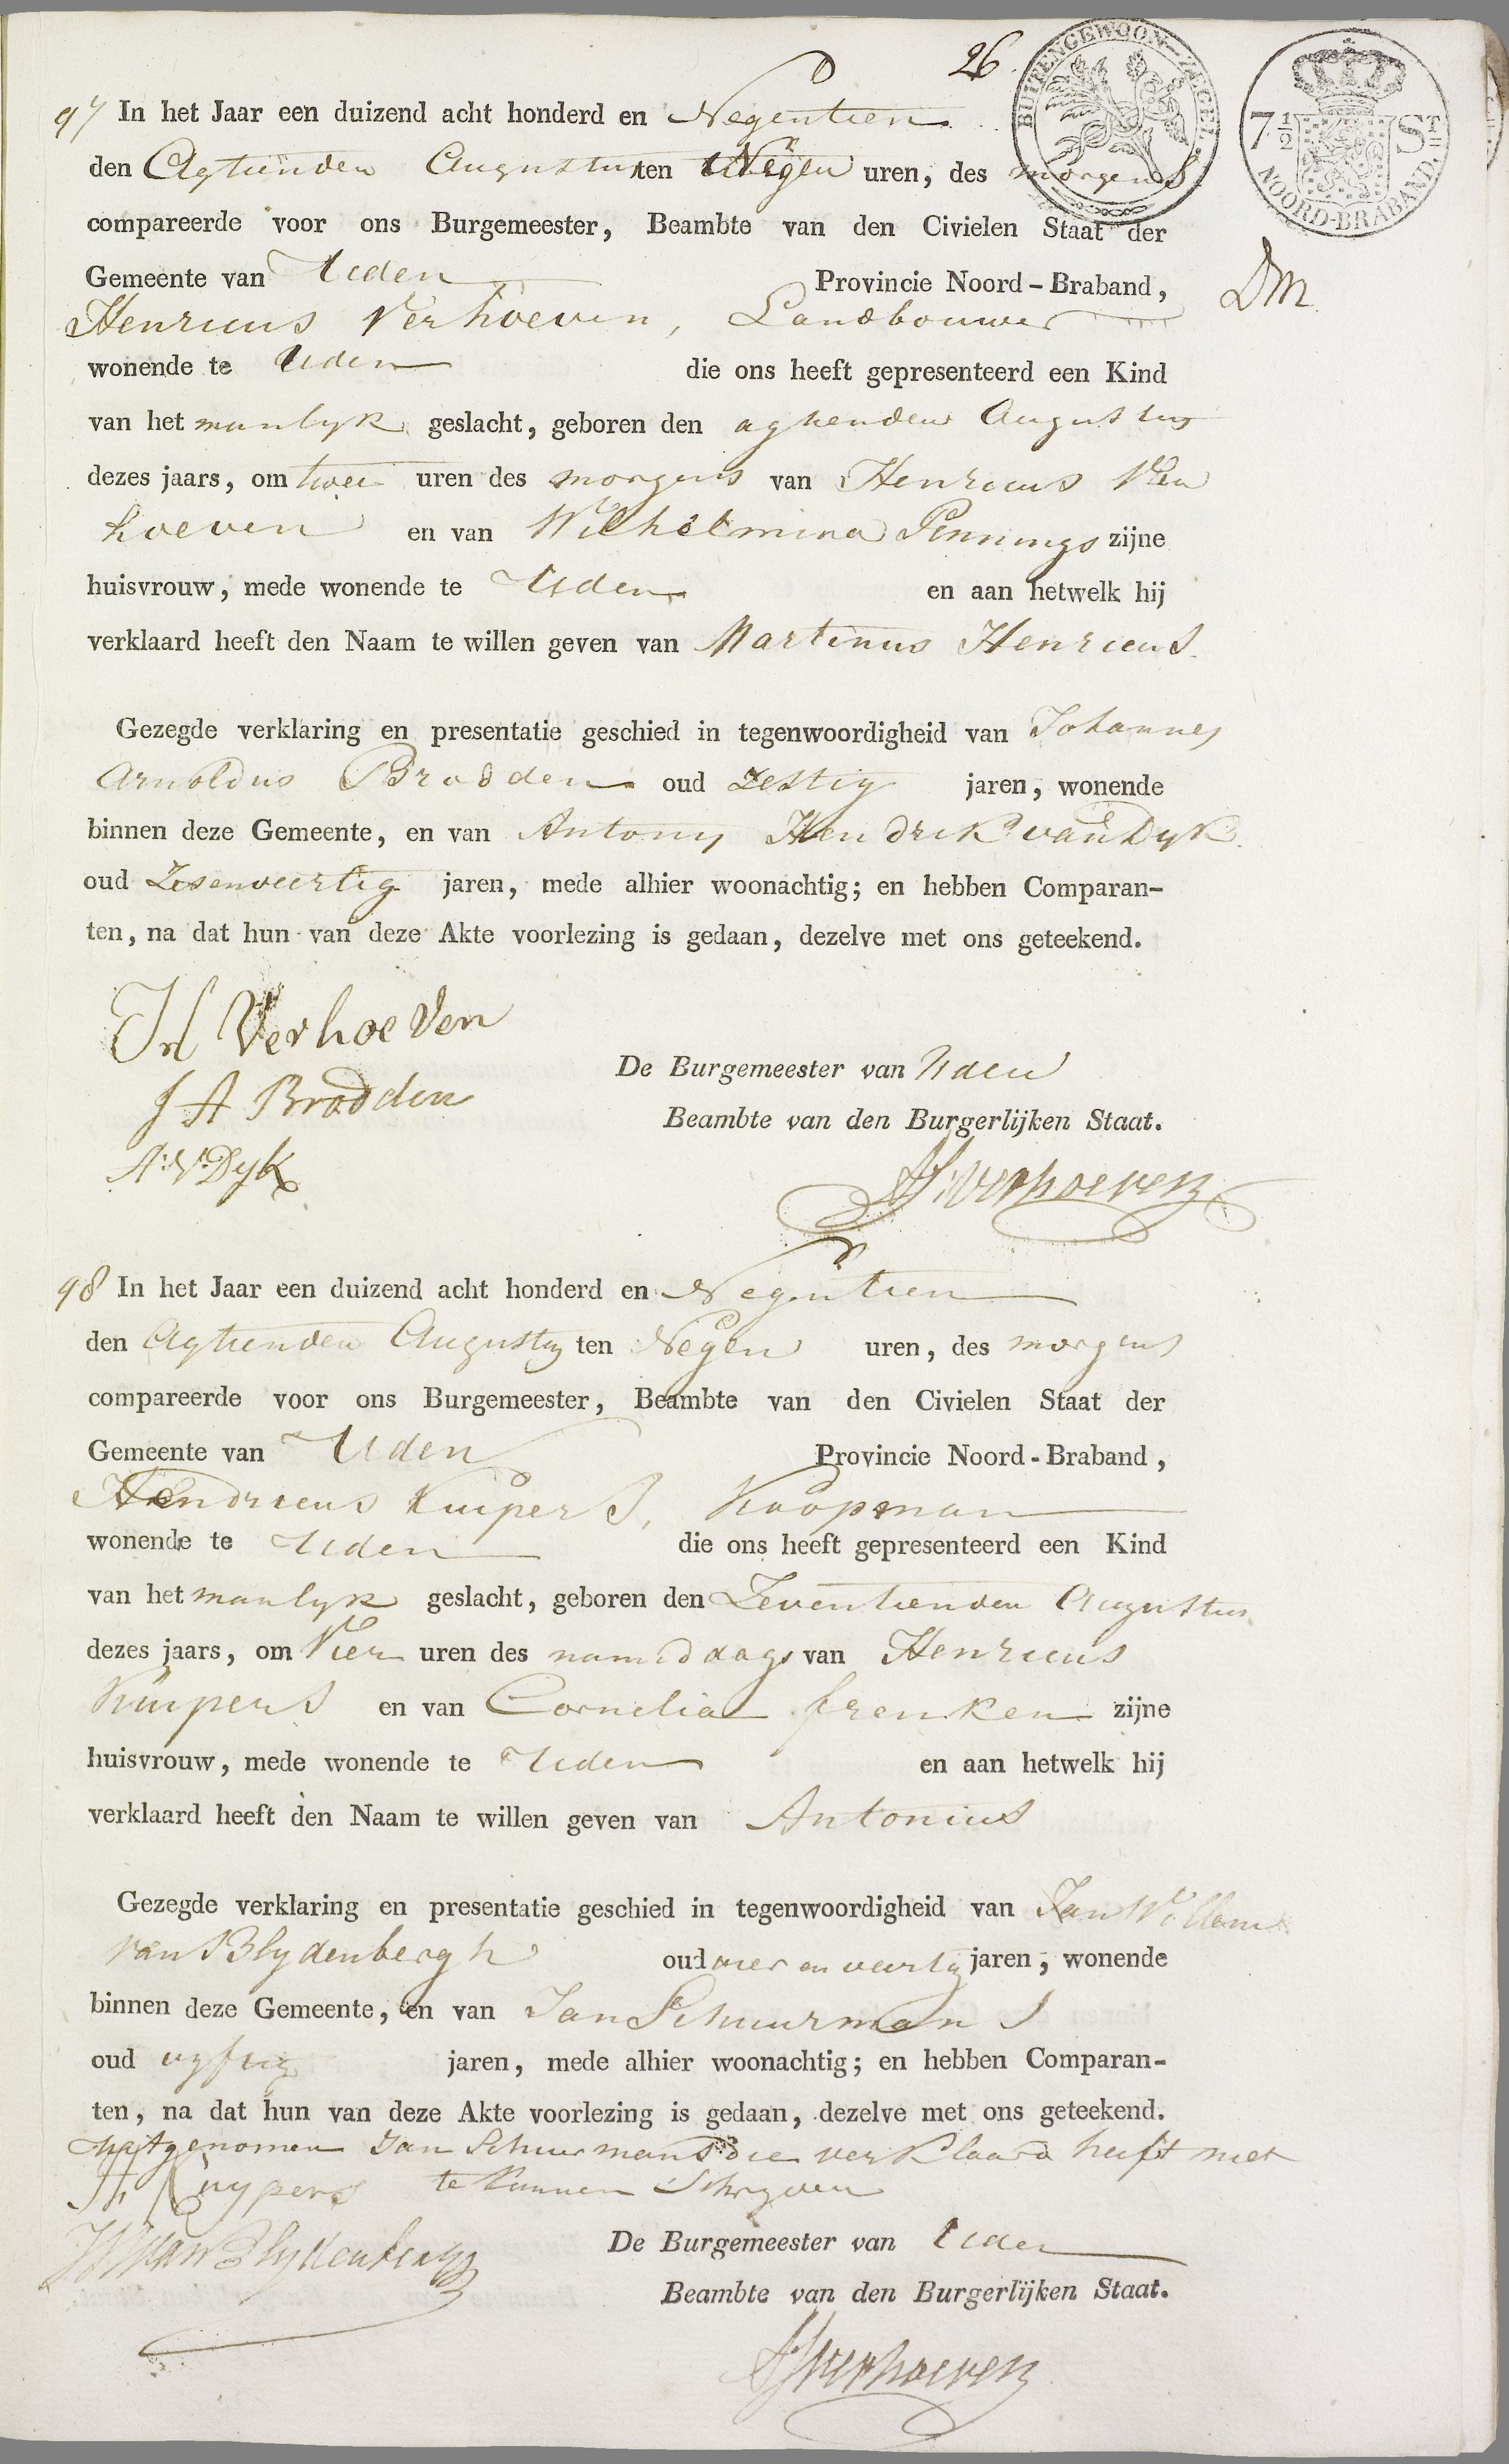 26.
BUITENGEWOON-ZEGEL.
7 1/2 ST
NOORD-BRABAND.
97 In het Jaar een duizend acht honderd en Negentien
den Agtienden Augustus ten Negen uren, des morgens
compareerde voor ons Burgemeester, Beambte van den Civielen Staat der
Gemeente van Uden Provincie Noord-Braband,
DM
Henricus Verhoeven, Landbouwer
wonende te Uden die ons heeft gepresenteerd een Kind
van het manlyk geslacht, geboren den agtienden Augustus
dezes jaars, om twee uren des morgens van Henricus Ver
hoeven en van Wilhelmina Pennings zijne
huisvrouw, mede wonende te Uden en aan hetwelk hij
verklaard heeft den Naam te willen geven van Martinus Henricus
Gezegde verklaring en presentatie geschied in tegenwoordigheid van Johannes
Arnoldus Brodden oud Zestig jaren, wonende
binnen deze Gemeente, en van Antony Hendrik van Dyk
oud Zesenveertig jaren, mede alhier woonachtig; en hebben Comparan-
ten, na dat hun van deze Akte voorlezing is gedaan, dezelve met ons geteekend.
H Verhoeven
De Burgemeester van Uden
J A Brodden
Beambte van den Burgerlijken Staat.
A: V: Dyk
Verhoeven
98 In het Jaar een duizend acht honderd en Negentien
den Agtienden Augustus ten Negen uren, des morgens
compareerde voor ons Burgemeester, Beambte van den Civielen Staat der
Gemeente van Uden Provincie Noord-Braband,
Hendricus Kuipers, Koopman
wonende te Uden die ons heeft gepresenteerd een Kind
van het manlyk geslacht, geboren den Zeventienden Augustus
dezes jaars, om Vier uren des namiddags van Henricus
Kuipers en van Cornelia frenken zijne
huisvrouw, mede wonende te Uden en aan hetwelk hij
verklaard heeft den Naam te willen geven van Antonius
Gezegde verklaring en presentatie geschied in tegenwoordigheid van Jan Willem
van Blydenbergh oud vier en veertig jaren, wonende
binnen deze Gemeente, en van Jan Schuurmans
oud vyftig jaren, mede alhier woonachtig; en hebben Comparan-
ten, na dat hun van deze Akte voorlezing is gedaan, dezelve met ons geteekend.
uitgenomen Jan Schuurmans die verklaard heeft niet
H, Kuypers te kunnen Schryven
De Burgemeester van Uden
JW van Blydenbergh
Beambte van den Burgerlijken Staat.
Verhoeven